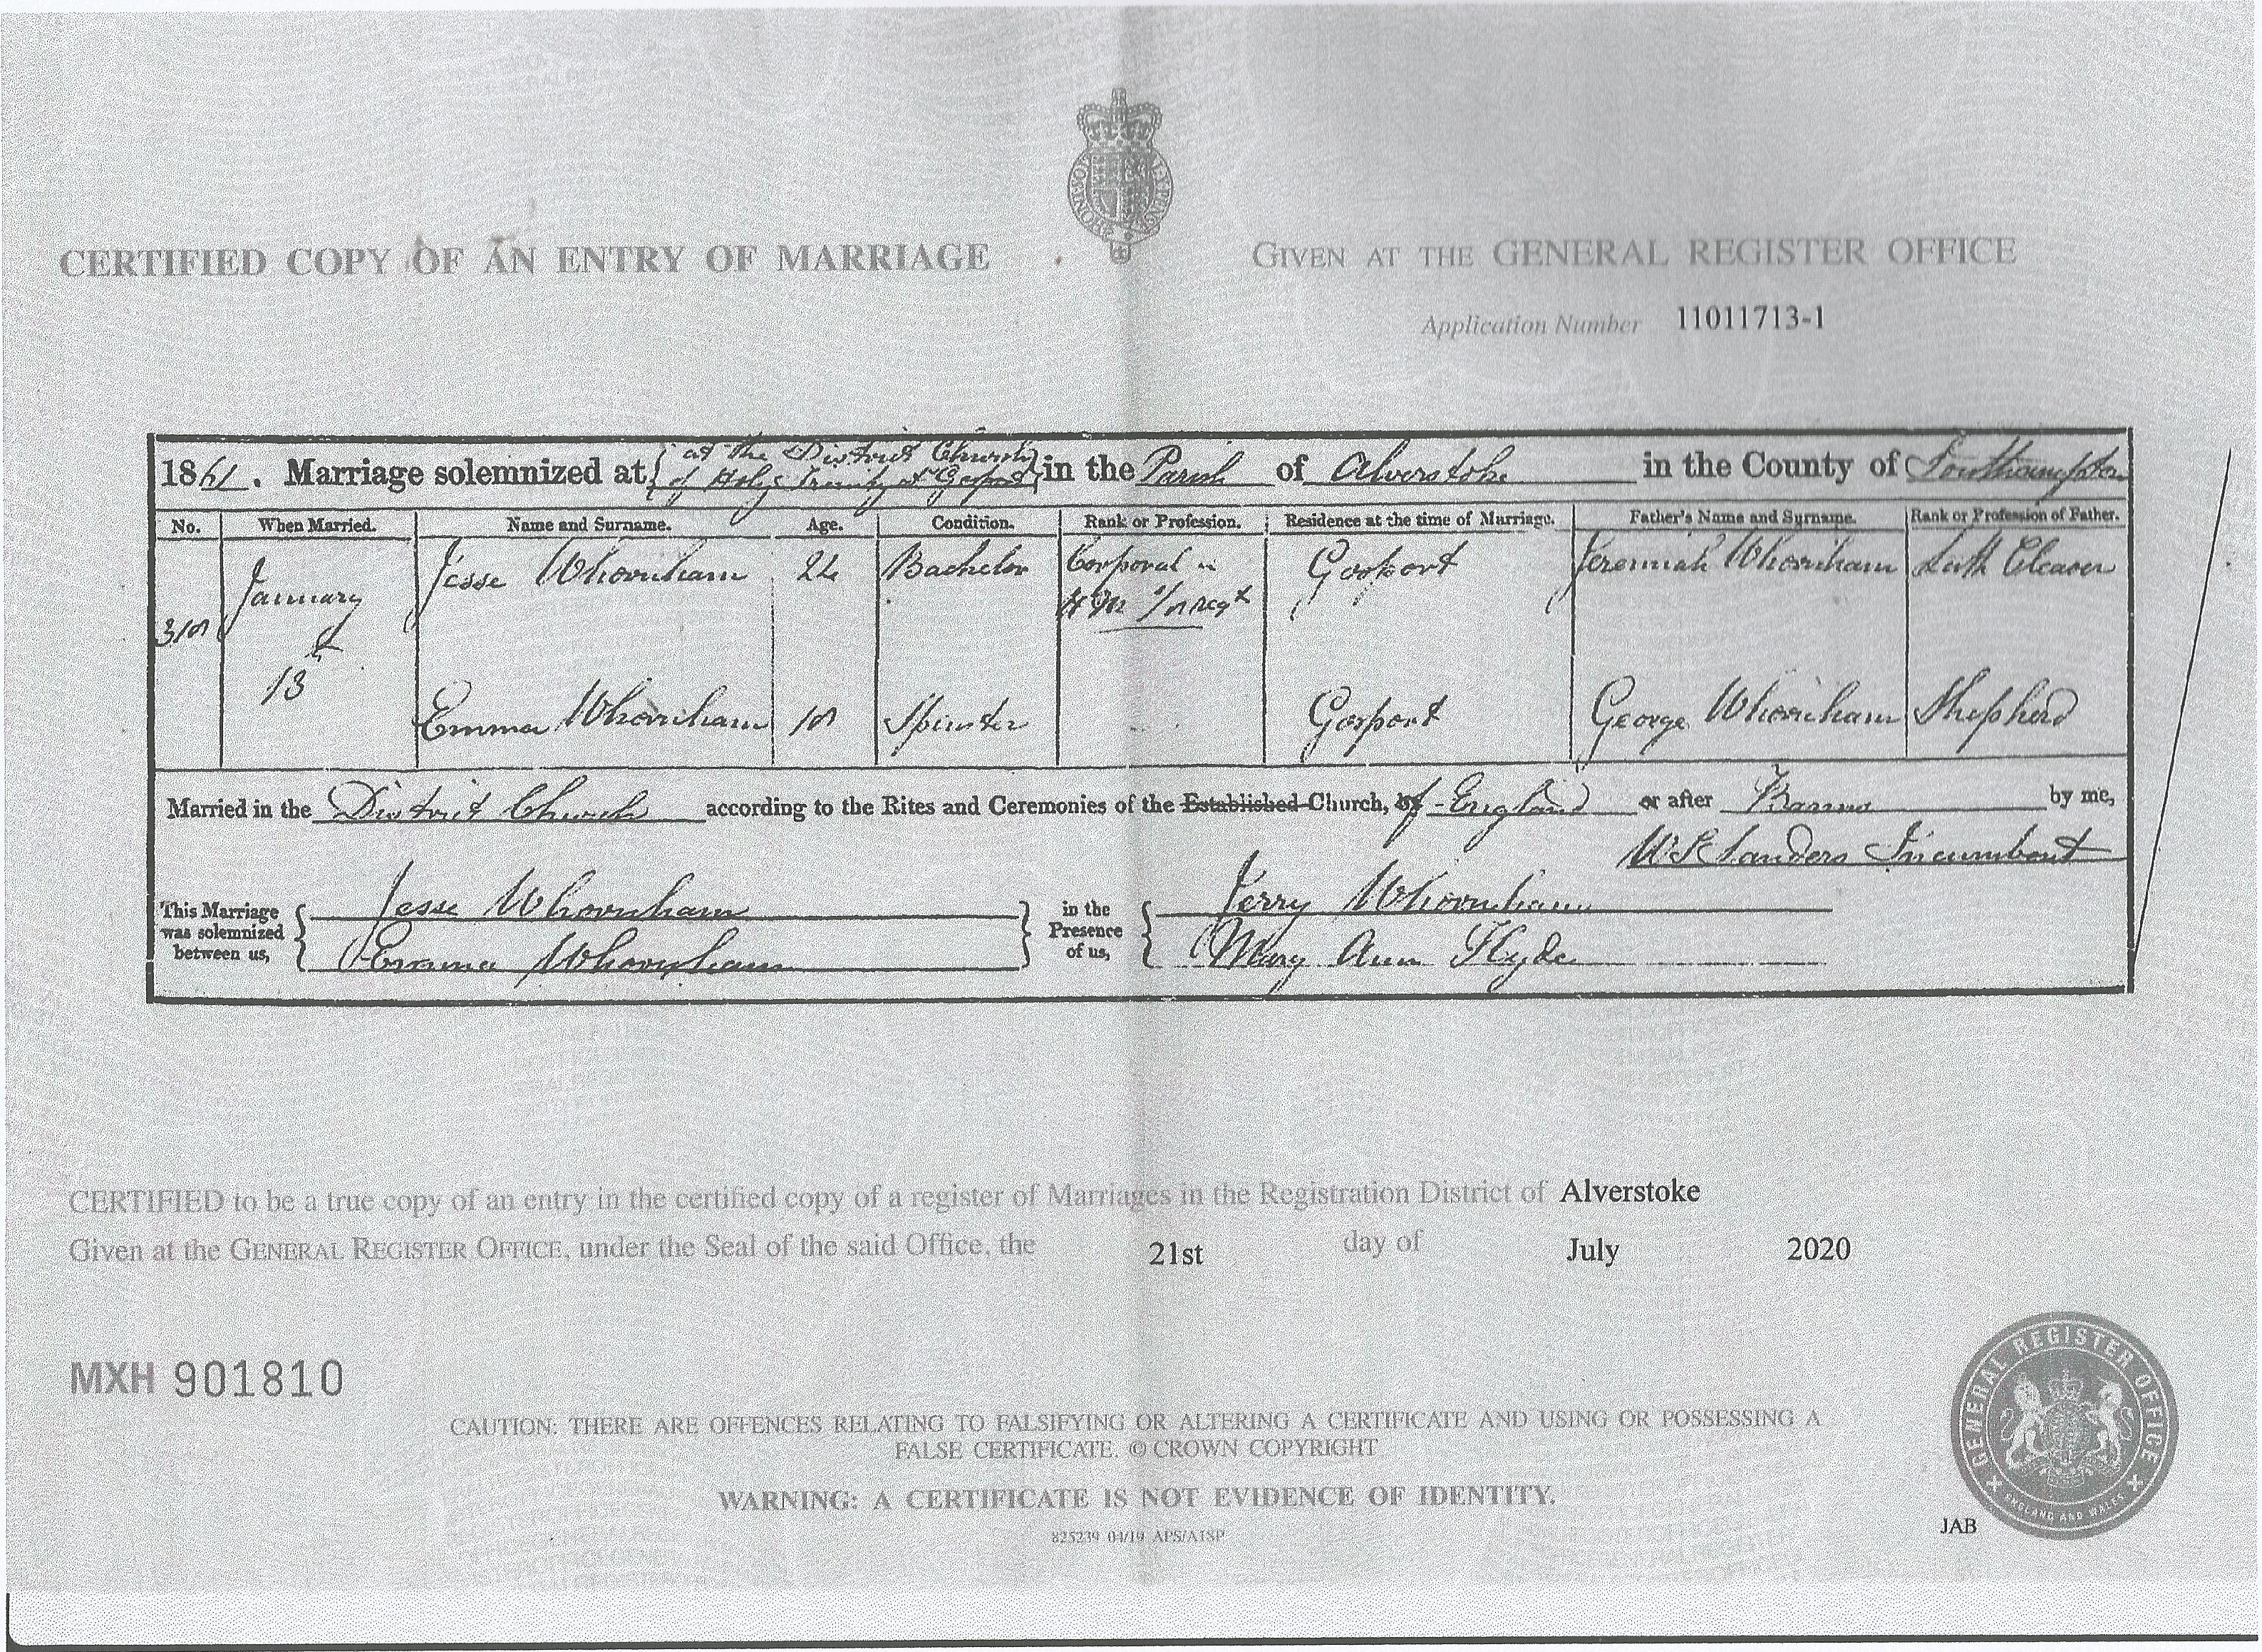 CERTIFIED COPY OF AN ENTRY OF MARRIAGE
GIVEN AT THE GENERAL REGISTER OFFICE
Application Number 11011713-1
1861. Marriage solemnized at at the District Church of Holy Trinity at Gosport in the Parish of Alverstoke in the County of Southampton
No. When Married. Name and Surname. Age. Condition. Rank or Profession. Residence at the time of Marriage. Father's Name and Surname. Rank or Profession of Father.
January 13th Jesse Whornham Bachelor Corporal in HM Regt Gosport Jeremiah Whornham Lath Cleaver
318
Emma Whornham 18 Spinster Gosport George Whornham Shepherd
Married in the District Church according to the Rites and Ceremonies of the Established Church, of England or after Banns by me,
Sanders Incumbent
This Marriage was solemnized between us, Jesse Whornham Emma Whornham in the Presence of us, Jerry Whornham Mary Ann Hyde
CERTIFIED to be a true copy of an entry in the certified copy of a register of Marriages in the Registration District of Alverstoke
Given at the GENERAL REGISTER OFFICE, under the Seal of the said Office, the 21st day of July 2020
MXH 901810
CAUTION: THERE ARE OFFENCES RELATING TO FALSIFYING OR ALTERING A CERTIFICATE AND USING OR POSSESSING A
FALSE CERTIFICATE. © CROWN COPYRIGHT
WARNING: A CERTIFICATE IS NOT EVIDENCE OF IDENTITY.
825239 04/19 APS/ATSP
JAB
GENERAL REGISTER OFFICE
ENGLAND AND WALES